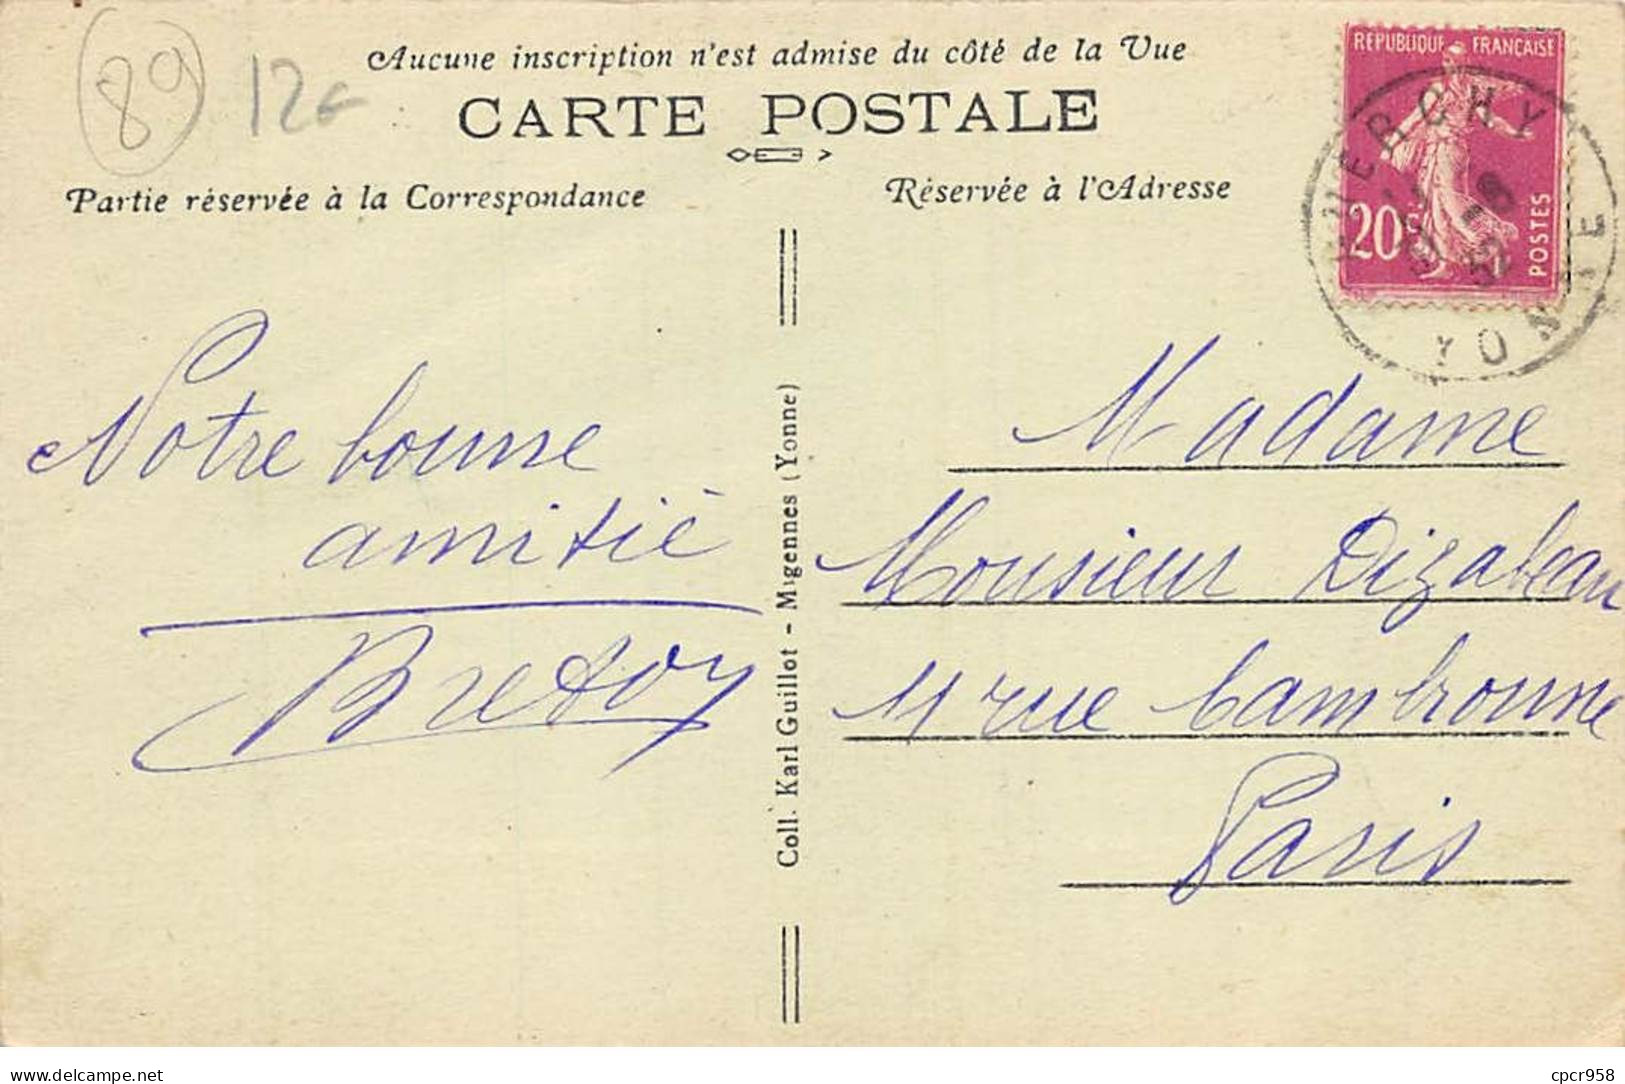 89
12€
Aucune inscription n'est admise du côté de la Vue
CARTE POSTALE
Partie réservée à la Correspondance
Réservée à l'Adresse
REPUBLIQUE FRANÇAISE
20c
POSTES
YONNE
Notre bonne
amitié
Coll. Karl Guillot - Migennes (Yonne)
Madame
Monsieur Dizabeau
11 rue Cambronne
Paris
www.delcampe.net
cpcr958